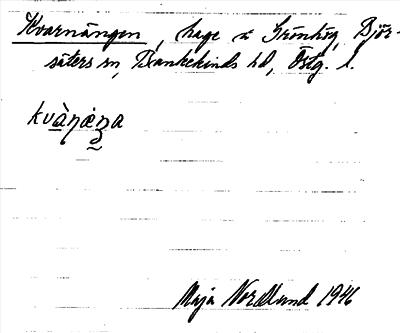 Kvarnängen, hage u Grönhög, Björ-
säters sn, Bankekinds hd, Östg. l.
kvàṉæṉa
Maja Nordlund 1946